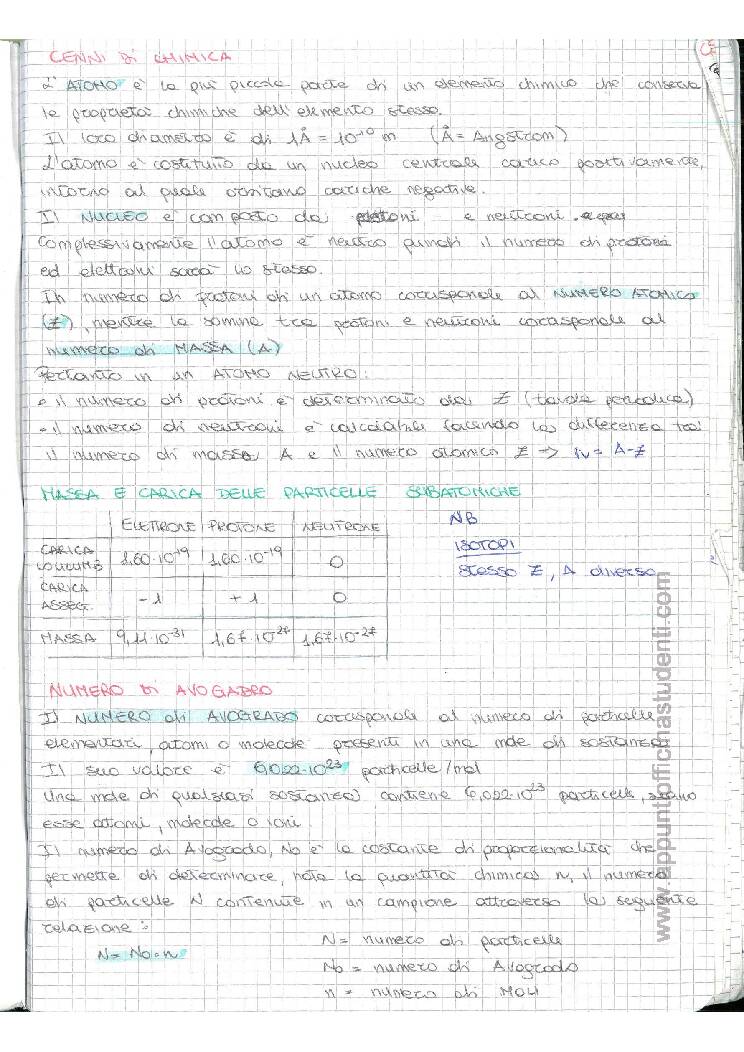 CENNI Di CHIMICA
L'ATOMO è la più piccola parte di un elemento chimico che conserva
le proprietà chimiche dell'elemento stesso.
Il loro diametro è di 1Å = 10⁻¹⁰ m (Å = Angstrom)
L'atomo è costituito da un nucleo centrale carico positivamente,
intorno al quale orbitano cariche negative.
Il NUCLEO è composto da protoni e neutroni.
Complessivamente l'atomo è neutro quindi il numero di protoni
ed elettroni sarà lo stesso.
Il numero di protoni di un atomo corrisponde al NUMERO ATOMICO
(Z), mentre la somma tra protoni e neutroni corrisponde al
numero di MASSA (A)
Pertanto in un ATOMO NEUTRO:
• il numero di protoni è determinato da Z (tavola periodica)
• il numero di neutroni è calcolabile facendo la differenza tra
il numero di massa A e il numero atomico Z → N = A-Z
MASSA E CARICA DELLE PARTICELLE SUBATOMICHE
ELETTRONE PROTONE NEUTRONE
CARICA
COULUMB 1,60·10⁻¹⁹ 1,60·10⁻¹⁹ 0
CARICA
ASSEG. -1 +1 0
MASSA 9,11·10⁻³¹ 1,67·10⁻²⁷ 1,67·10⁻²⁷
NB
ISOTOPI
stesso Z, A diverso
NUMERO Di AVOGADRO
Il NUMERO di AVOGRADO corrisponde al numero di particelle
elementari, atomi o molecole presenti in una mole di sostanza
Il suo valore è 6,022·10²³ particelle/mol
Una mole di qualsiasi sostanza contiene 6,022·10²³ particelle, siano
esse atomi, molecole o ioni
Il numero di Avogrado, No è la costante di proporzionalità che
permette di determinare, nota la quantità chimica n, il numero
di particelle N contenute in un campione attraverso la seguente
relazione:
N = No·n
N = numero di particelle
No = numero di Avogrado
n = numero di MOLI
www.appuntofficinastudenti.com